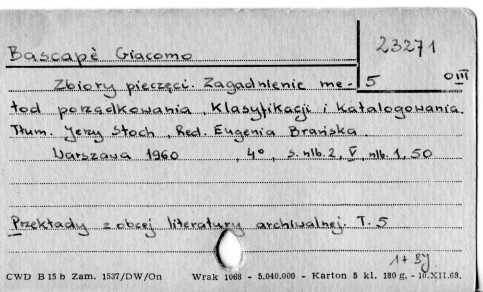 23271
Bascapè Giacomo
Zbiory pieczęci. Zagadnienie me- 5 0III
tod porządkowania, klasyfikacji i katalogowania.
Tłum. Jerzy Stoch, Red. Eugenia Brańska.
Warszawa 1960, 4°, s. nlb. 2, V, nlb. 1, 50
Przekłady z obcej literatury archiwalnej. T. 5
1+
CWD B 15 b Zam. 1537/DW/On Wrak 1068 - 5.040.000 - Karton 5 kl. 180 g, - 10.XII.68.